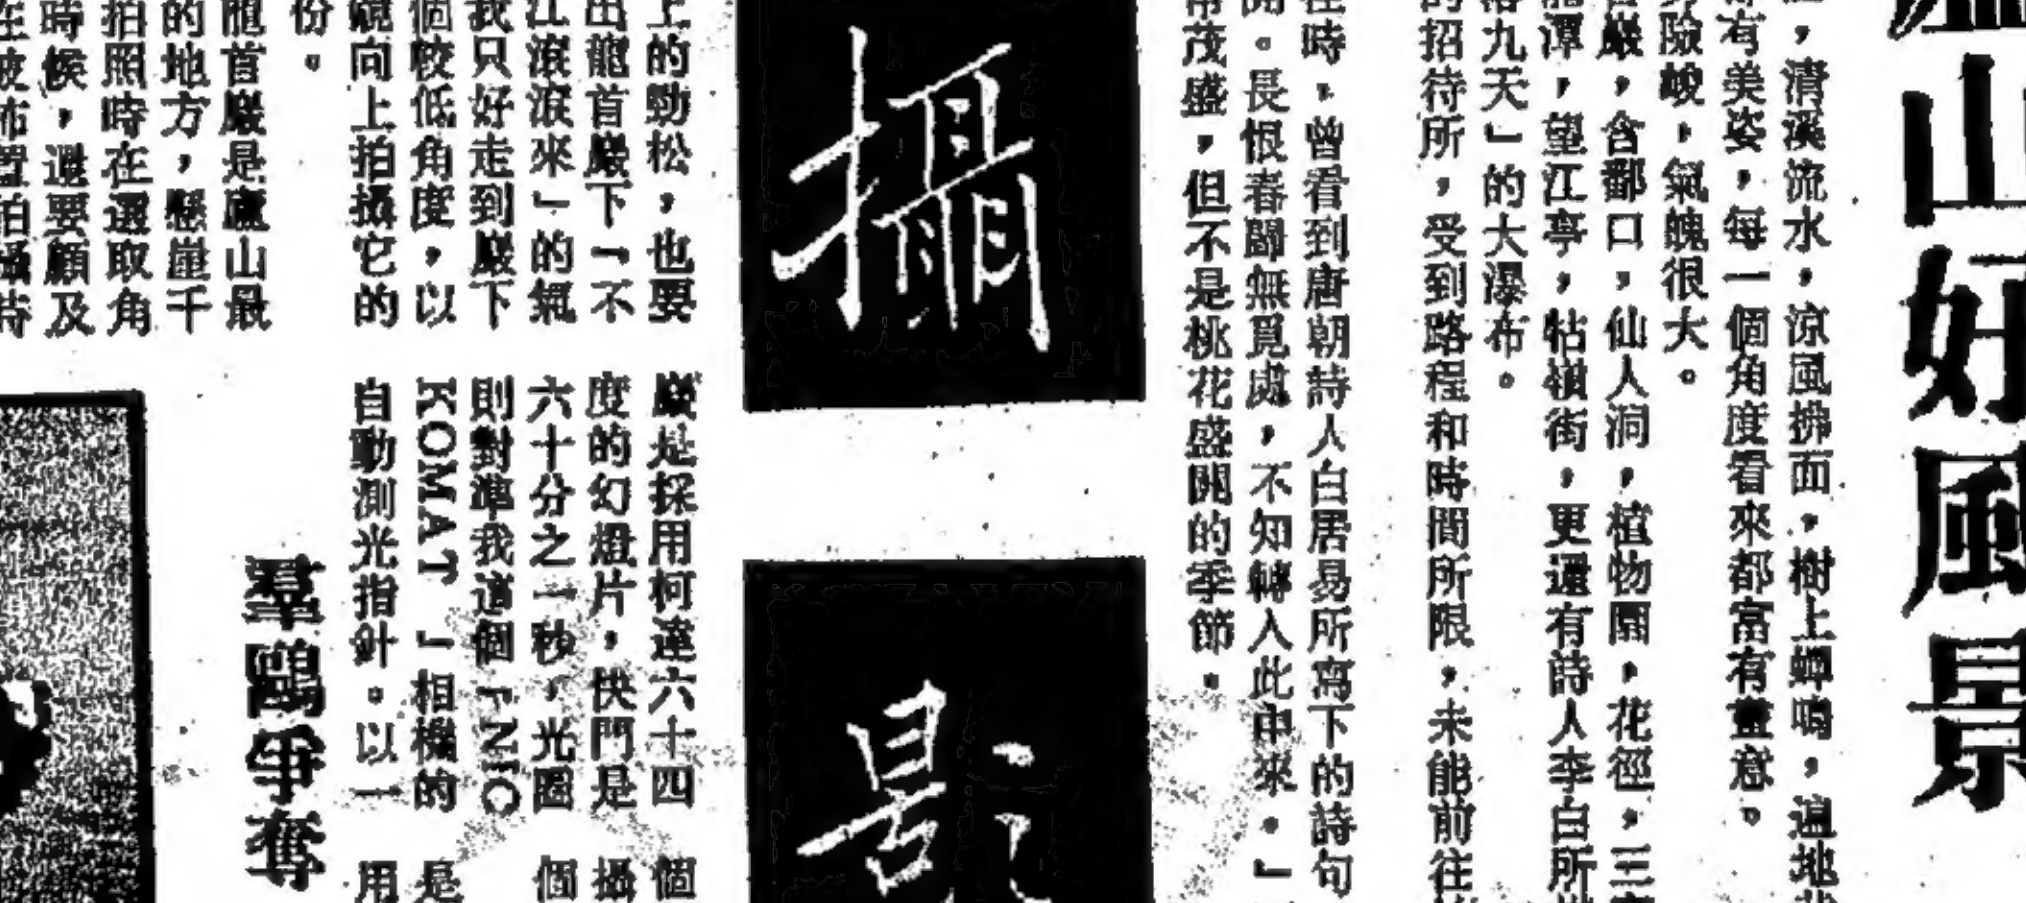 山好風景
，清溪流水，涼風拂面，樹上蟬鳴，遍地
有美姿，每一個角度看來都富有畫意。
險峻，氣魄很大。
巖，含鄱口，仙人洞，植物園，花徑，三
龍潭，望江亭，牯嶺街，更還有詩人李白所
落九天」的大瀑布。
的招待所，受到路程和時間所限，未能前往
時，曾看到唐朝詩人白居易所寫下的詩句
。長恨春歸無覓處，不知轉入此中來。」
常茂盛，但不是桃花盛開的季節。
攝影
上的勁松，也要
出龍首巖下「不
江滾滾來」的氣
我只好走到巖下
個較低角度，以
鏡向上拍攝它的
份。
龍首巖是廬山最
的地方，懸崖千
拍照時在選取角
時候，還要顧及
在被佈置拍攝時
巖是採用柯達六十四
度的幻燈片，快門是
六十分之一秒，光圈
則對準我這個「NIC
KOMAT」相機的
自動測光指針。以一
羣鷗爭奪
個
攝
個
是
用